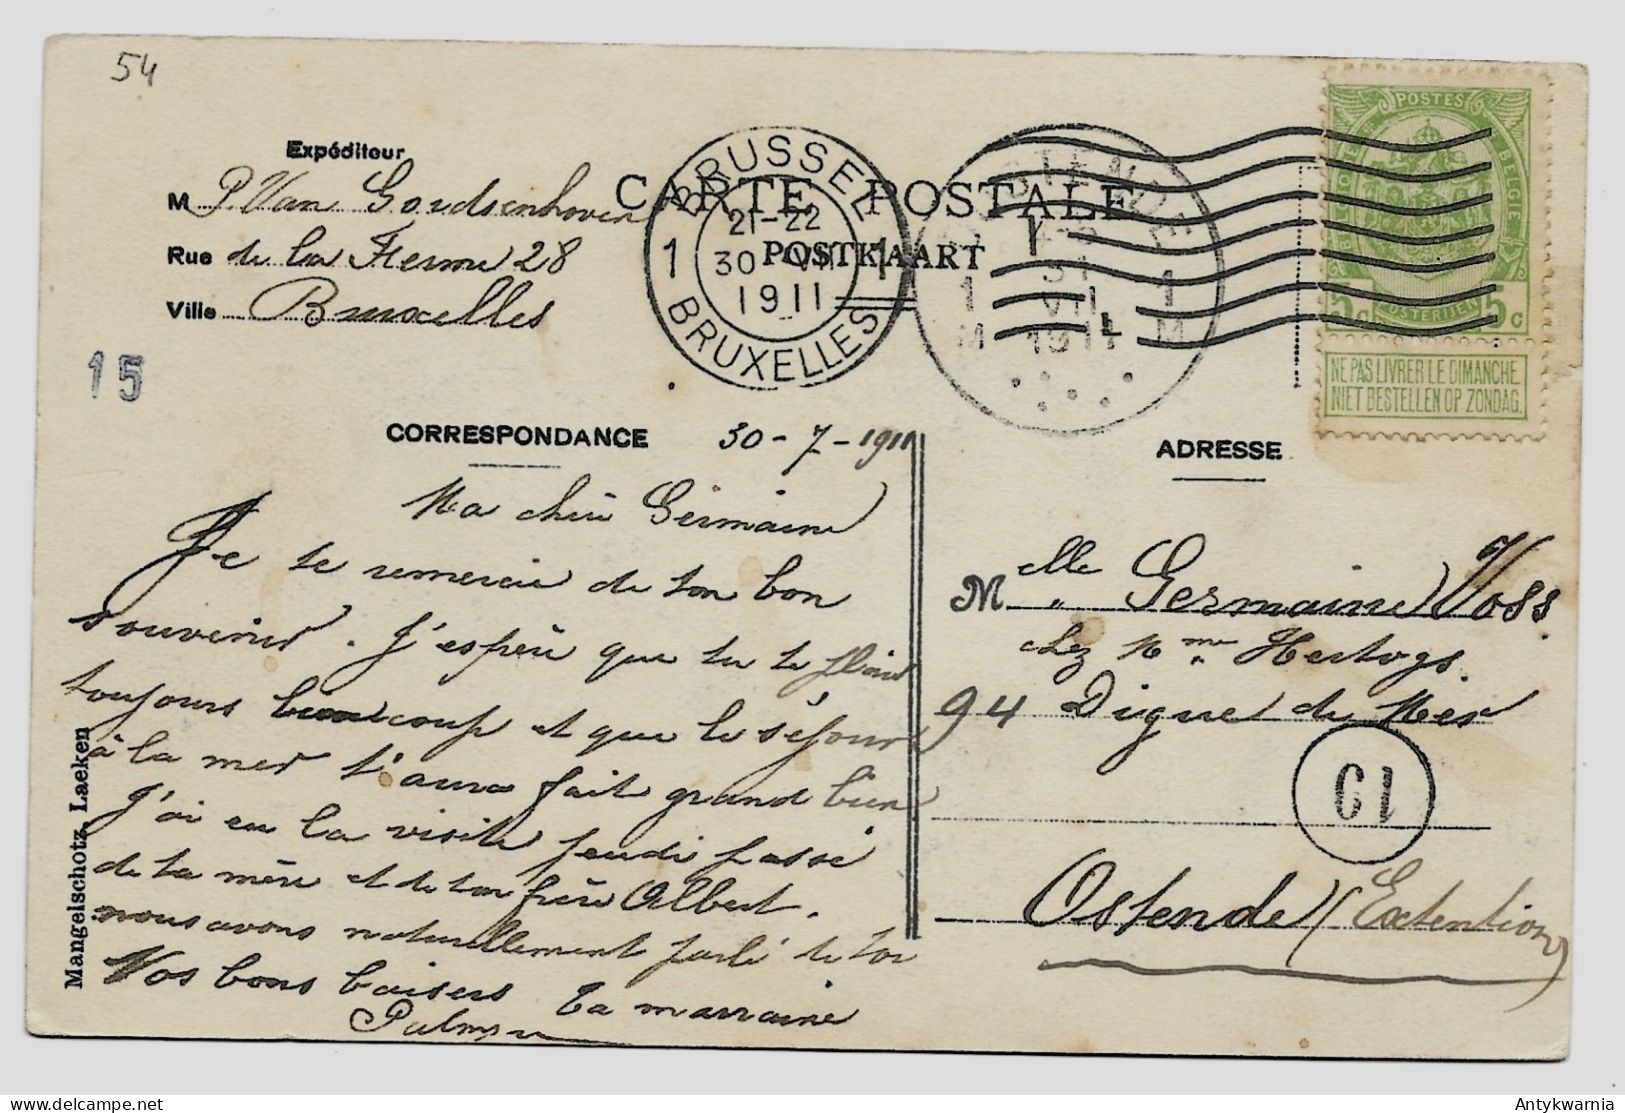 54
Expéditeur
M P. Van Goidsenhoven
Rue de la Ferme 28
Ville Bruxelles
15
CARTE POSTALE
POSTKAART
BRUSSEL
21-22
1 30 VII 1
1911
BRUXELLES
OSTENDE
31
1 VII 1
M 1911 M
POSTES
BELGIQUE BELGIE
POSTERIJEN
5c 5c
NE PAS LIVRER LE DIMANCHE
NIET BESTELLEN OP ZONDAG
CORRESPONDANCE
30-7-1911
Ma chère Germaine
Je te remercie de ton bon
souvenir. J'espère que tu te plais
toujours beaucoup et que le séjour
à la mer t'aura fait grand bien
J'ai eu la visite jeudi passé
de ta mère et de ton frère Albert.
nous avons naturellement parlé de toi
Vos bons baisers ta marraine
Palmyre
Mangelschotz, Laeken
ADRESSE
Melle Germaine Voss
chez Mme Hertogs
94 Digue de Mer
10
Ostende (Extention)
www.delcampe.net
Antykwarnia